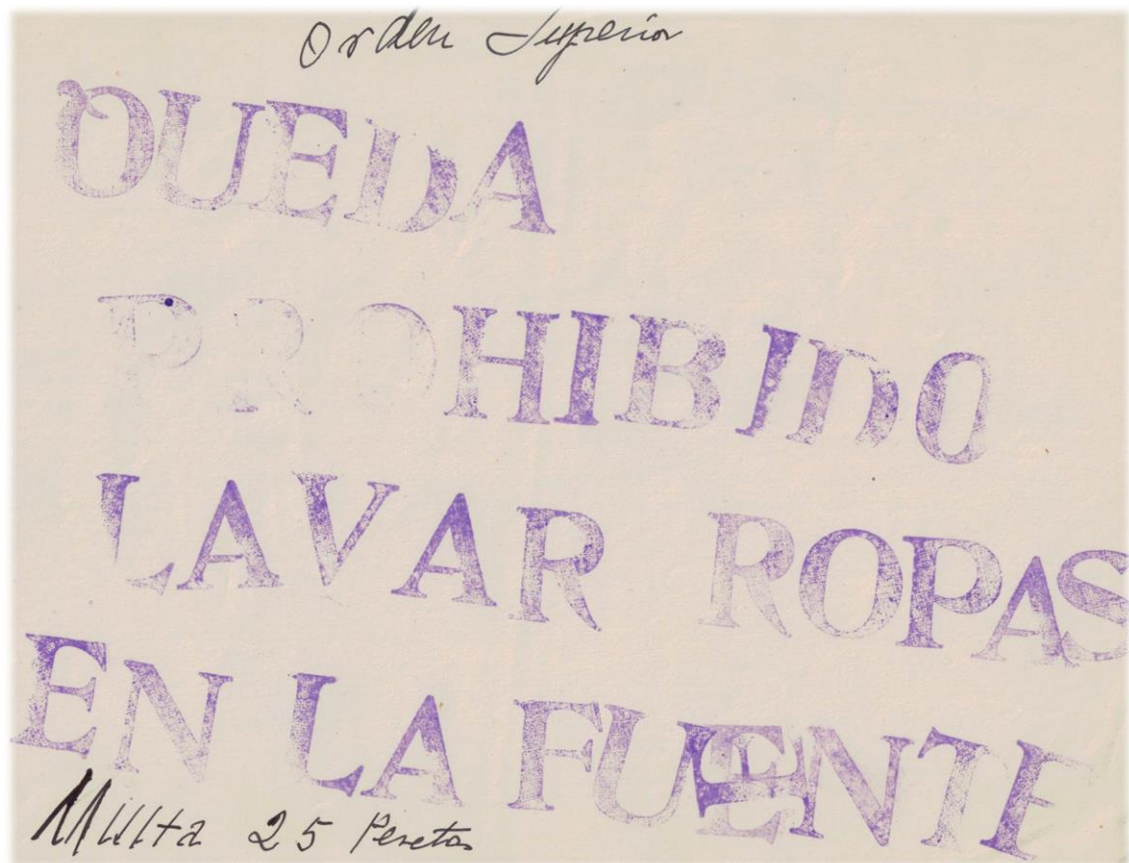 Orden Superior
QUEDA
PROHIBIDO
LAVAR ROPAS
EN LA FUENTE
Multa 25 Pesetas